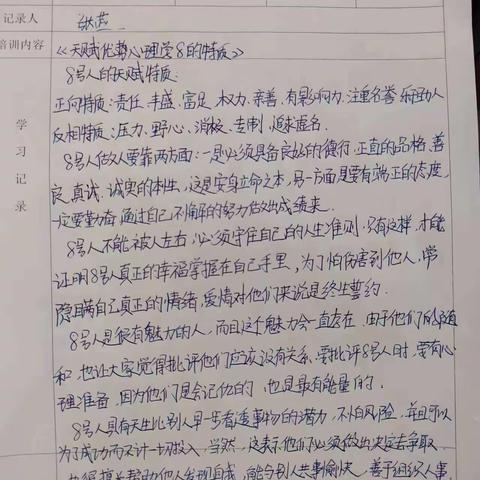 记录人
培训内容 《天赋优势心理学8的特质》
学习记录
8号人的天赋特质:
正向特质:责任、丰盛、富足、权力、亲善、有影响力、注重名誉、乐于助人
反相特质:压力、野心、消极、专制、追求虚名.
8号人做人要靠两方面:一是必须具备良好的德行、正直的品格、善
良、真诚、诚实的本性,这是安身立命之本,另一方面是要有端正的态度,
一定要勤奋,通过自己不懈的努力做出成绩来.
8号人不能被人左右,必须守住自己的人生准则,只有这样,才能
证明8号人真正的幸福掌握在自己手里,为了怕伤害到他人,常
隐瞒自己真正的情绪,爱情对他们来说是终生誓约.
8号人是很有魅力的人,而且这个魅力会一直存在.由于他们的随
和,也让大家觉得批评他们应该没有关系,要批评8号人时,要有心
理准备,因为他们是会记仇的,也是最有能量的.
8号人具有天生比别人早一步看透事物的潜力,不怕风险,并且可以
为了成功而不计一切投入,当然,这表示他们必须做出决定去争取.
也很擅长帮助他人发现自我,能与别人共事愉快,善于组织人事,